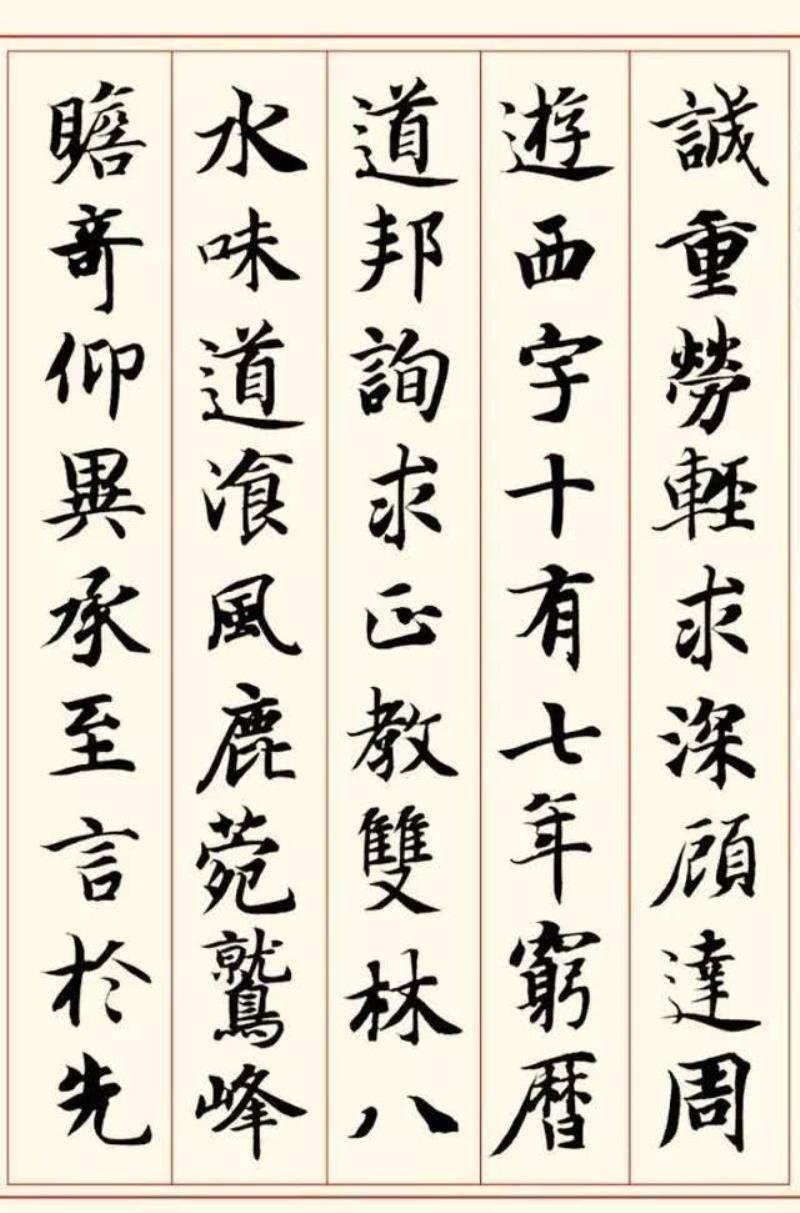 誠重勞輕求深顧達周
遊西宇十有七年窮曆
道邦詢求正教雙林八
水味道飡風鹿菀鷲峰
瞻奇仰異承至言於先